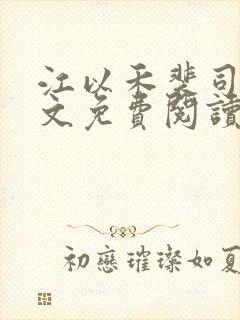 江以禾裴司
文免費閱讀
初戀璀璨如夏